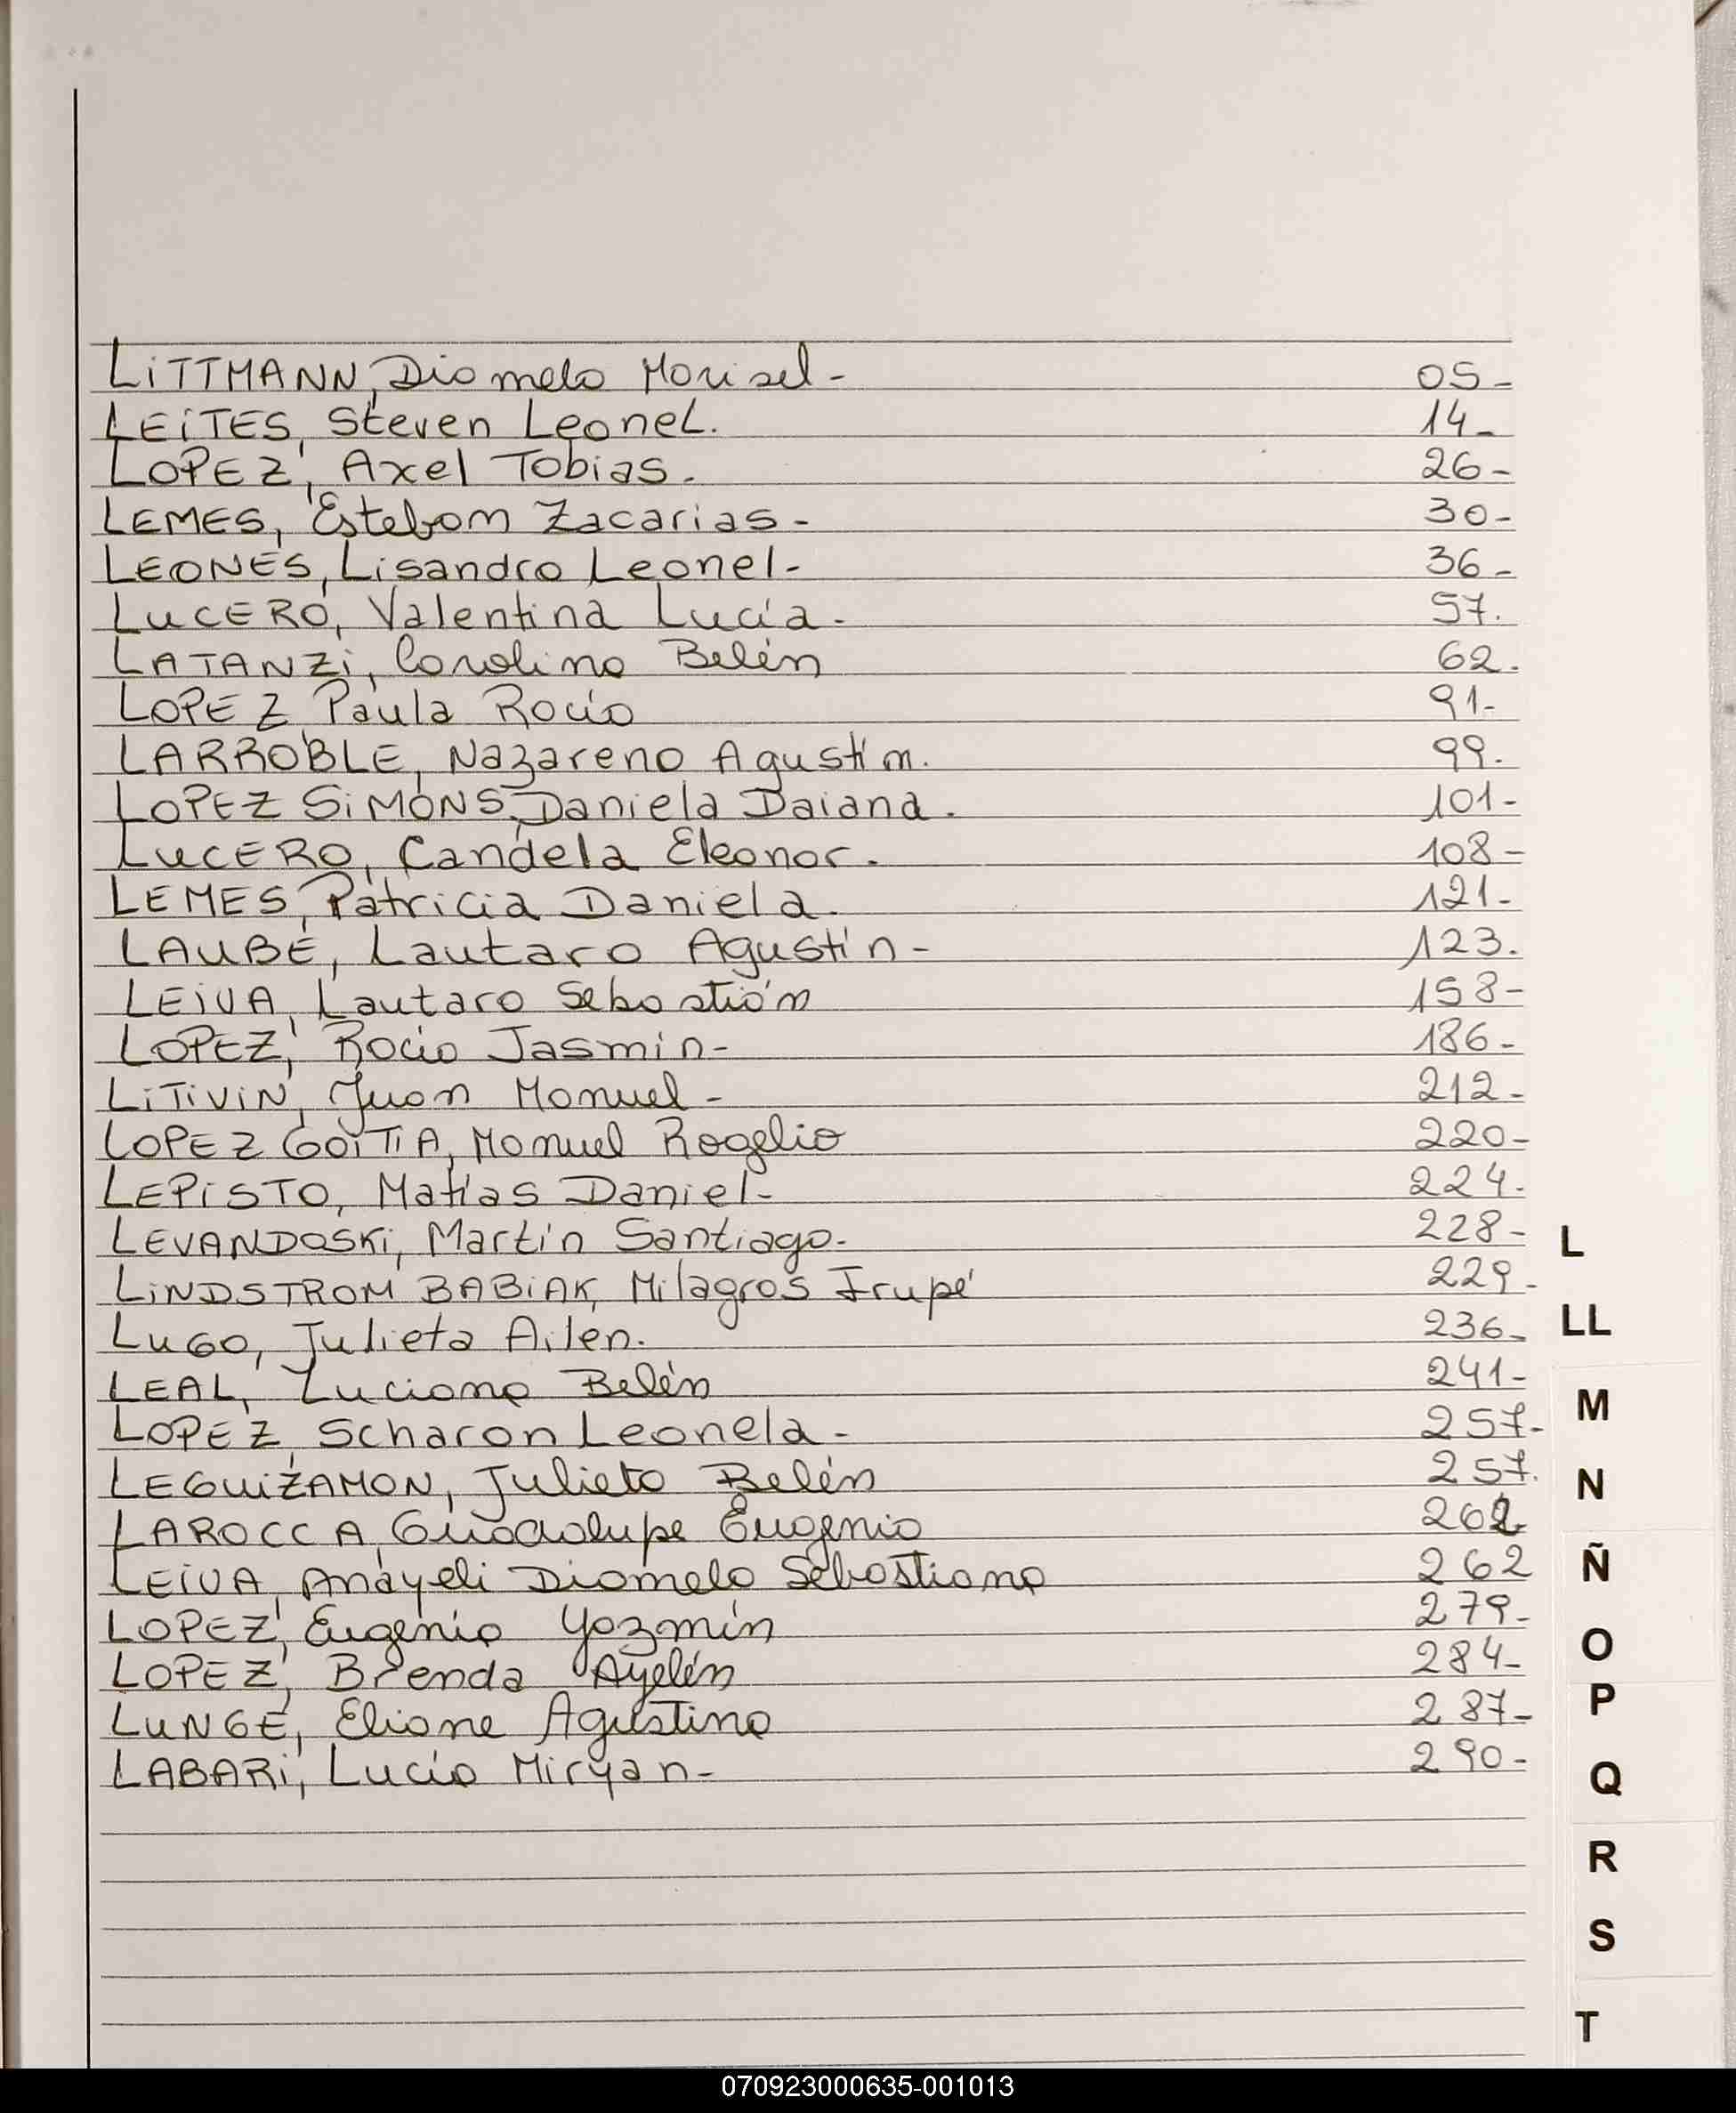 LiTTMANN, Diamela Marisel- 05-
LEiTES, Steven Leonel. 14-
LOPEZ, Axel Tobias. 26-
LEMES, Esteban Zacarias- 30-
LEONES, Lisandro Leonel- 36-
LUCERO, Valentina Lucía- 57.
LATANZi, Carolina Belén 62.
LOPEZ Paula Rocío 91-
LARROBLE, Nazareno Agustín. 99.
LOPEZ SiMONS, Daniela Daiana. 101-
LUCERO, Candela Eleonor. 108-
LEMES, Patricia Daniela. 121-
LAUBE, Lautaro Agustín- 123.
LEiVA, Lautaro Sebastián 158-
LOPEZ, Rocío Jasmin- 186-
LiTiViN, Juan Manuel- 212-
LOPEZ GOiTiA, Manuel Rogelio 220-
LEPiSTO, Matías Daniel- 224-
LEVANDOSKi, Martín Santiago- 228-
LiNDSTROM BABiAK, Milagros Irupé 229-
LUGO, Julieta Ailen. 236-
LEAL, Luciana Belén 241-
LOPEZ, Scharon Leonela- 257-
LEGUiZAMON, Julieta Belén 257.
LAROCCA, Guadalupe Eugenia 262
LEiVA, Anayeli Diamela Sebastiana 262
LOPEZ, Eugenia Yazmín 279-
LOPEZ, Brenda Ayelén 284-
LUNGE, Eliane Agustina 287-
LABARi, Lucía Miryan- 290-
L
LL
M
N
Ñ
O
P
Q
R
S
T
070923000635-001013